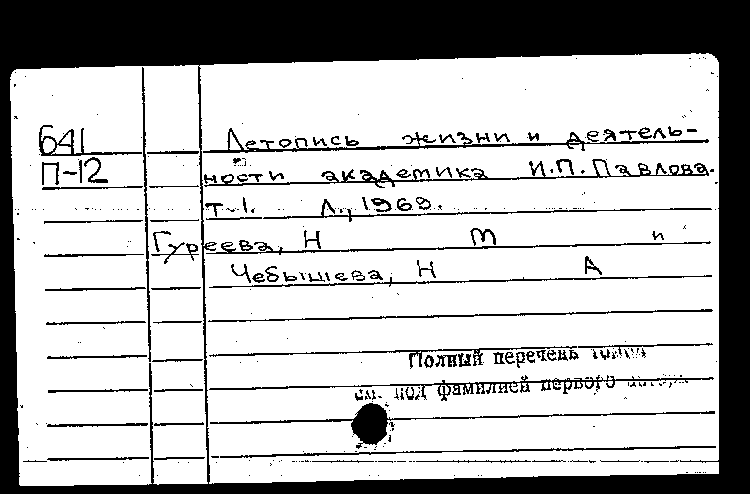 641
П-12
Летопись жизни и деятель-
ности академика И.П.Павлова.
т-1. Л., 1969.
Гуреева, Н М и
Чебышева, Н А
Полный перечень томов
см. под фамилией первого автора